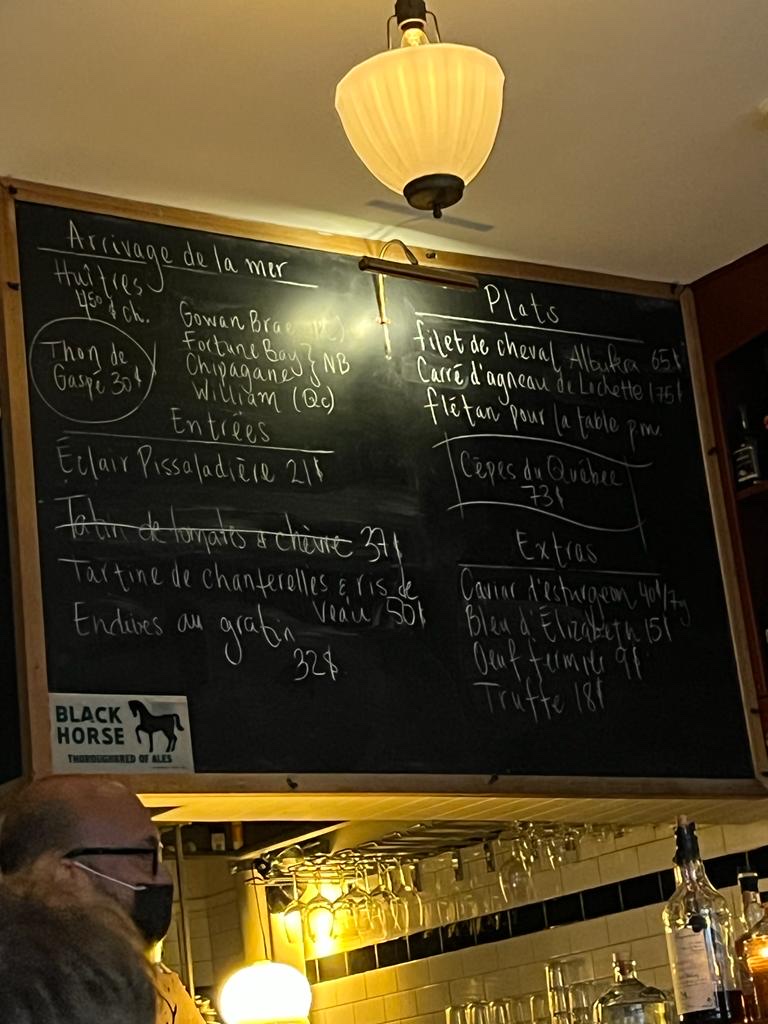 Arrivage de la mer
Huîtres
450 $ Ch.
Gowan Brae
Fortune Bay }
Chipagane } NB
William (Qc)
Thon de
Gaspé 30$
Entrées
Éclair Pissaladière 21$
Tatin de tomates & chèvre 37$
Tartine de chanterelles & ris de
veau 50$
Endives au gratin
32$
Plats
filet de cheval Albufera 65$
Carré d'agneau de Lochette 175$
flétan pour la table p.m.
Cèpes du Québec
73$
Extras
Caviar d'esturgeon 40$/7g
Bleu d'Élizabeth 15$
Oeuf fermier 9$
Truffe 18$
BLACK
HORSE
THOROUGHBRED OF ALES